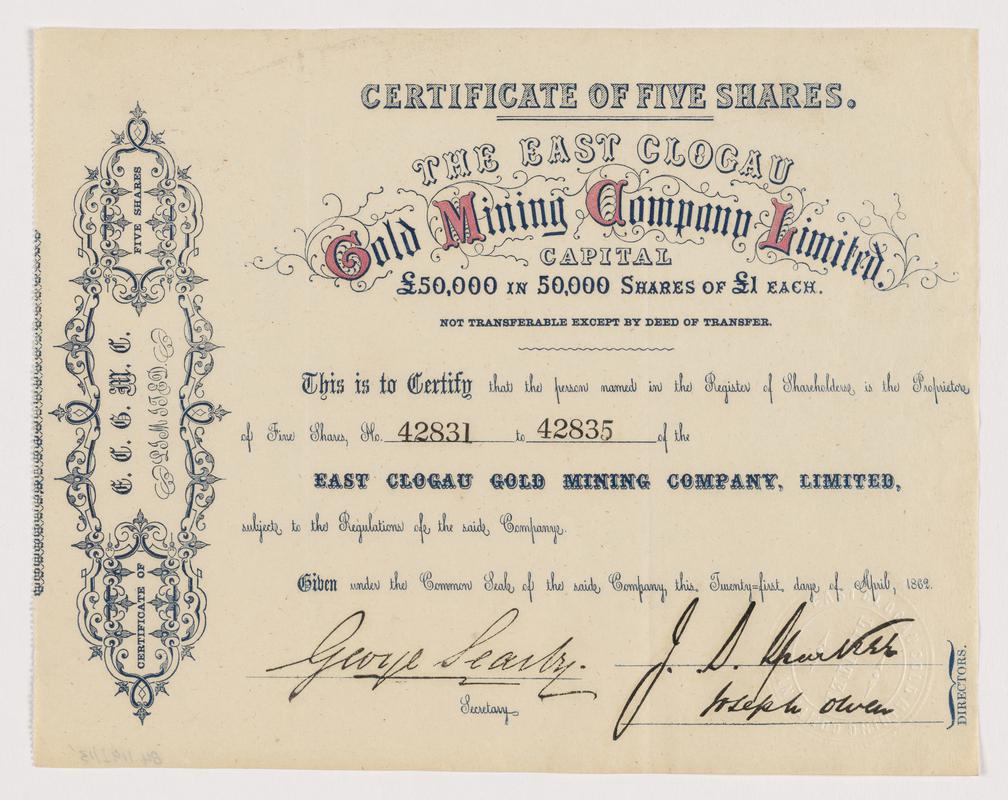 CERTIFICATE OF FIVE SHARES.
THE EAST CLOGAU
Gold Mining Company Limited.
CAPITAL
£50,000 IN 50,000 SHARES OF £1 EACH.
NOT TRANSFERABLE EXCEPT BY DEED OF TRANSFER.
This is to Certify that the person named in the Register of Shareholders, is the Proprietor
of Five Shares, No. 42831 to 42835 of the
EAST CLOGAU GOLD MINING COMPANY, LIMITED,
subject to the Regulations of the said Company.
Given under the Common Seal of the said Company, this Twenty=first day of April, 1862.
George Searby.
Secretary
J. D.
Joseph Owen
DIRECTORS.
CERTIFICATE OF
FIVE SHARES
E. C. G. M. C.
LIMITED